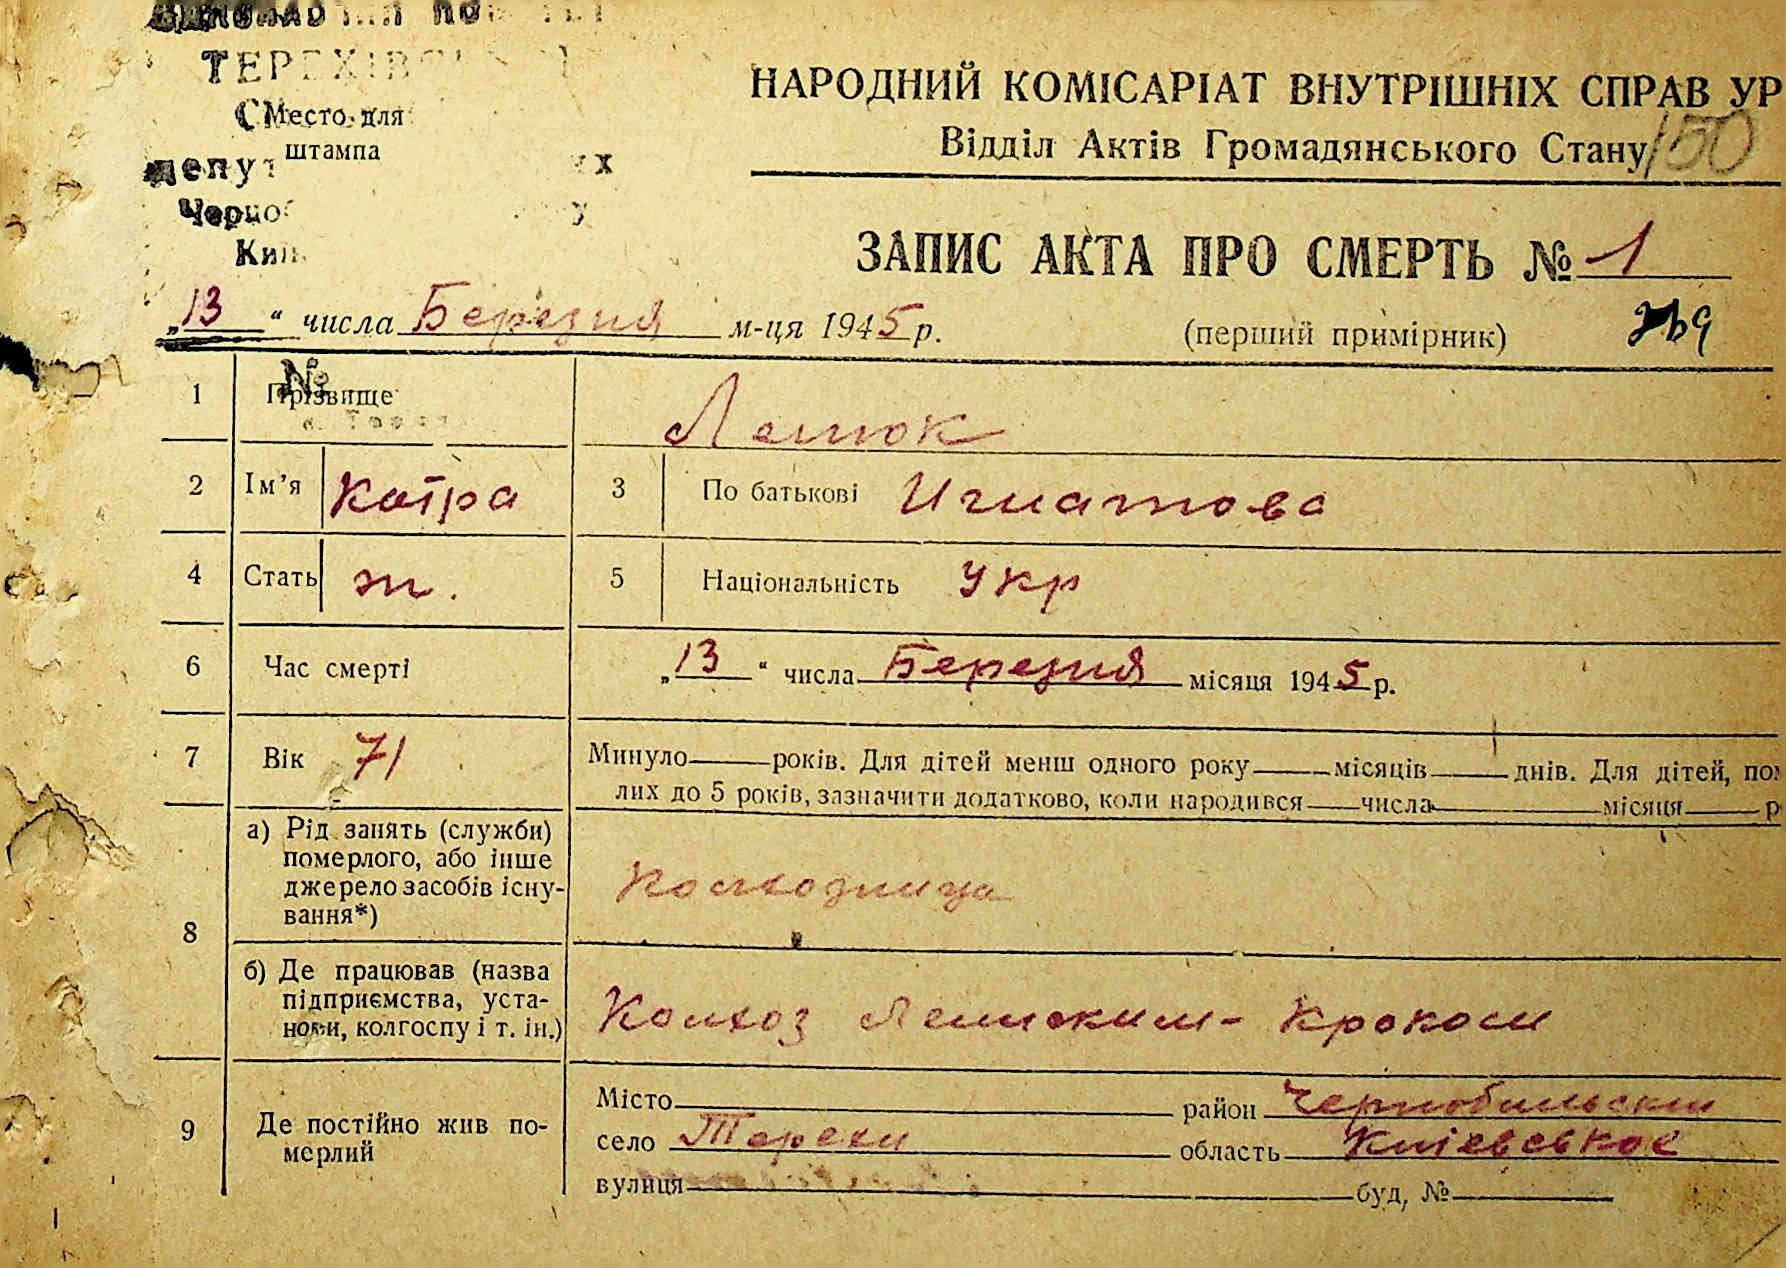 ТЕРЕХІВС
Место для
штампа
депут их
Чорноб у
Киї
НАРОДНИЙ КОМІСАРІАТ ВНУТРІШНІХ СПРАВ УР
Відділ Актів Громадянського Стану
150
ЗАПИС АКТА ПРО СМЕРТЬ № 1
„13“ числа Березня м-ця 1945 р. (перший примірник)
№
1 Прізвище
2 Ім'я Катра 3 По батькові Игнатова
4 Стать ж. 5 Національність Укр
6 Час смерті „13“ числа Березня місяця 1945 р.
7 Вік 71 Минуло років. Для дітей менш одного року місяців днів. Для дітей, по
лих до 5 років, зазначити додатково, коли народився числа місяця р
8 а) Рід занять (служби)
померлого, або інше
джерело засобів існу-
вання*)
Колхозница
б) Де працював (назва
підприємства, уста-
нови, колгоспу і т. ін.)
Колхоз Лениским- Кроком
9 Де постійно жив по-
мерлий
Місто район Чернобильски
село Терехи область Київське
вулиця буд, №